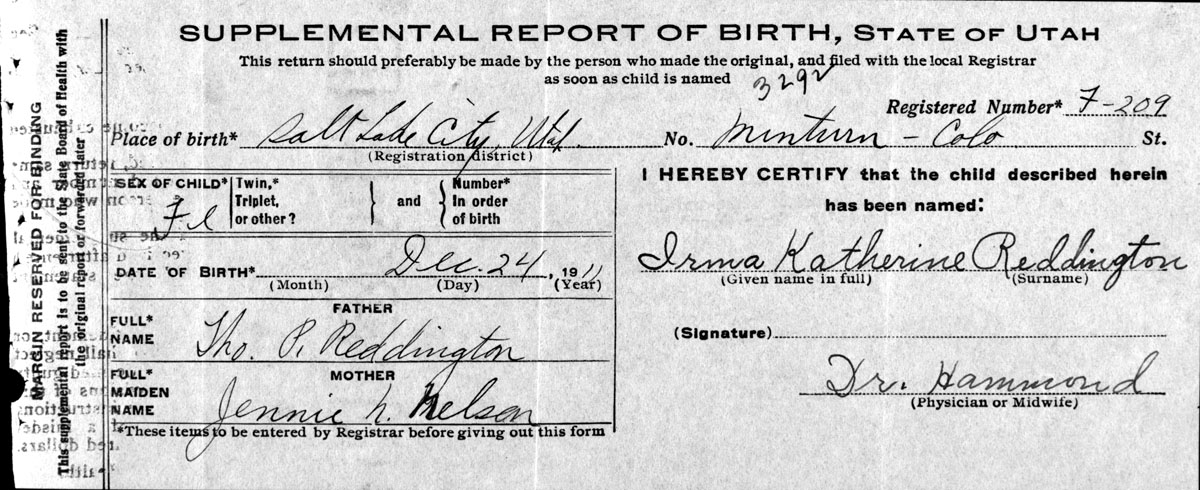 SUPPLEMENTAL REPORT OF BIRTH, STATE OF UTAH
This return should preferably be made by the person who made the original, and filed with the local Registrar
as soon as child is named
3292
Registered Number* F-209
Place of birth* Salt Lake City, Utah No. Minturn - Colo St.
(Registration district)
SEX OF CHILD* Fl
Twin,* Triplet, or other?
and
Number* In order of birth
DATE OF BIRTH* Dec. 24, 1911
(Month) (Day) (Year)
FATHER
FULL* NAME Tho. P. Reddington
MOTHER
FULL* MAIDEN NAME Jennie N. Nelson
*These items to be entered by Registrar before giving out this form
I HEREBY CERTIFY that the child described herein
has been named:
Irma Katherine Reddington
(Given name in full) (Surname)
(Signature)
Dr. Hammond
(Physician or Midwife)
MARGIN RESERVED FOR BINDING
This supplemental report is to be sent to the State Board of Health with
the original report or forwarded later